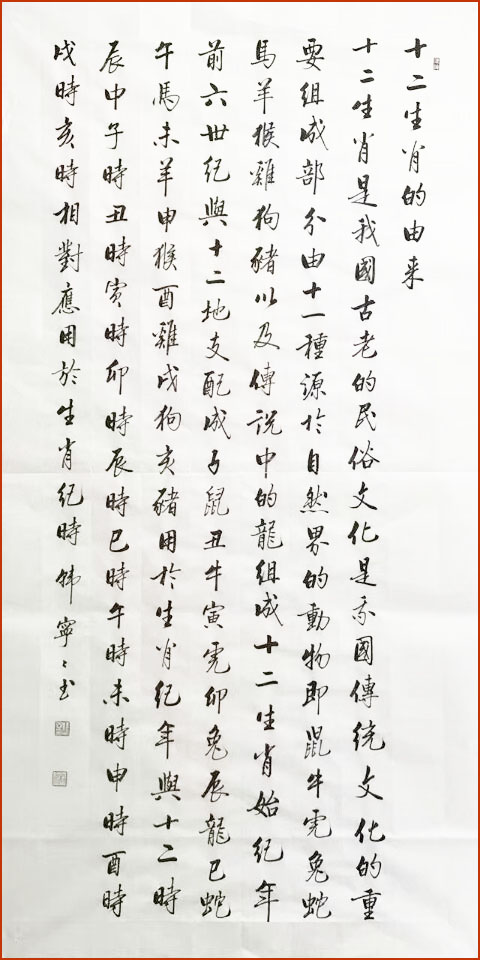 十二生肖的由来
十二生肖是我國古老的民俗文化是我國傳統文化的重
要組成部分由十一種源於自然界的動物即鼠牛虎兔蛇
馬羊猴雞狗豬以及傳説中的龍組成十二生肖始紀年
前六世紀與十二地支配成子鼠丑牛寅虎卯兔辰龍巳蛇
午馬未羊申猴酉雞戌狗亥豬用於生肖紀年與十二時
辰中子時丑時寅時卯時辰時巳時午時未時申時酉時
戌時亥時相對應用於生肖紀時韩寧〻书